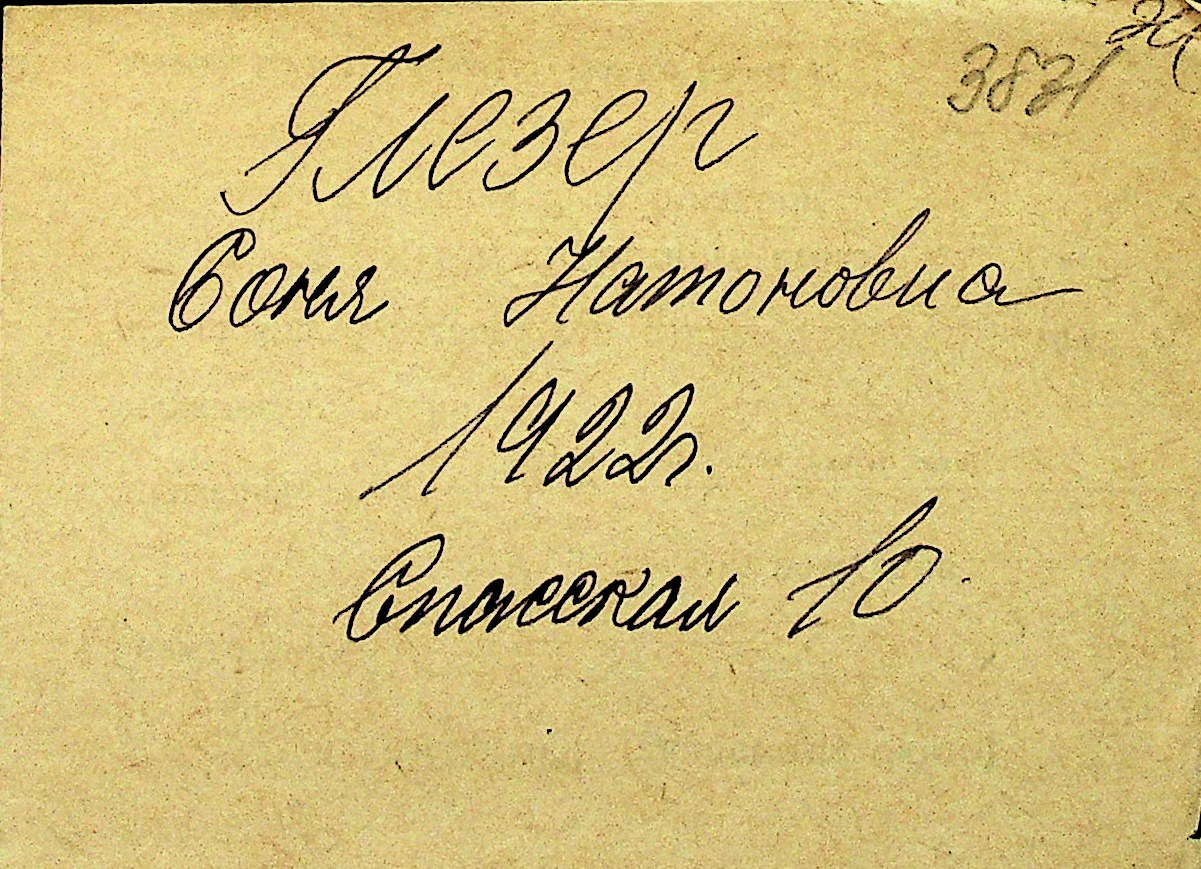 3831
Глезер
Соня Натоновна
1922г.
Спасская 10